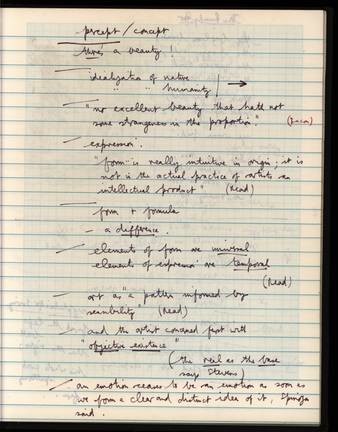 percept / concept
there's a beauty!
idealization of native
" " humanity
"no excellent beauty that hath not
some strangeness in the proportion." (Bacon)
expression.
"form is really intuitive in origin; it is
not in the actual practice of artists an
intellectual product" (Read)
form + formula
— a difference.
elements of form are universal
elements of expression are temporal
(Read)
art as "a pattern informed by
sensibility" (Read)
and the artist concerned first with
"objective existence"
(the real as the base
says Stevens)
an emotion ceases to be an emotion as soon as
we form a clear and distinct idea of it, Spinoza
said.